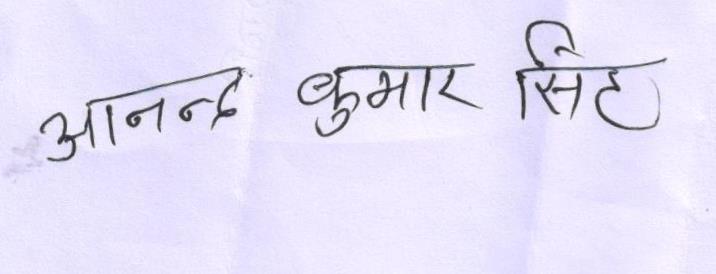 आनन्द कुमार सिंह